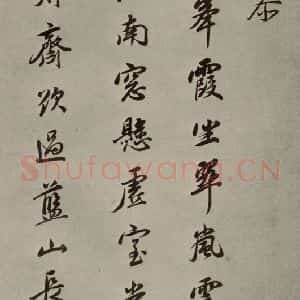 峯霞坐翠嵐雲
南窓懸虛室
齋欲過藍山長
Shufawang.CN